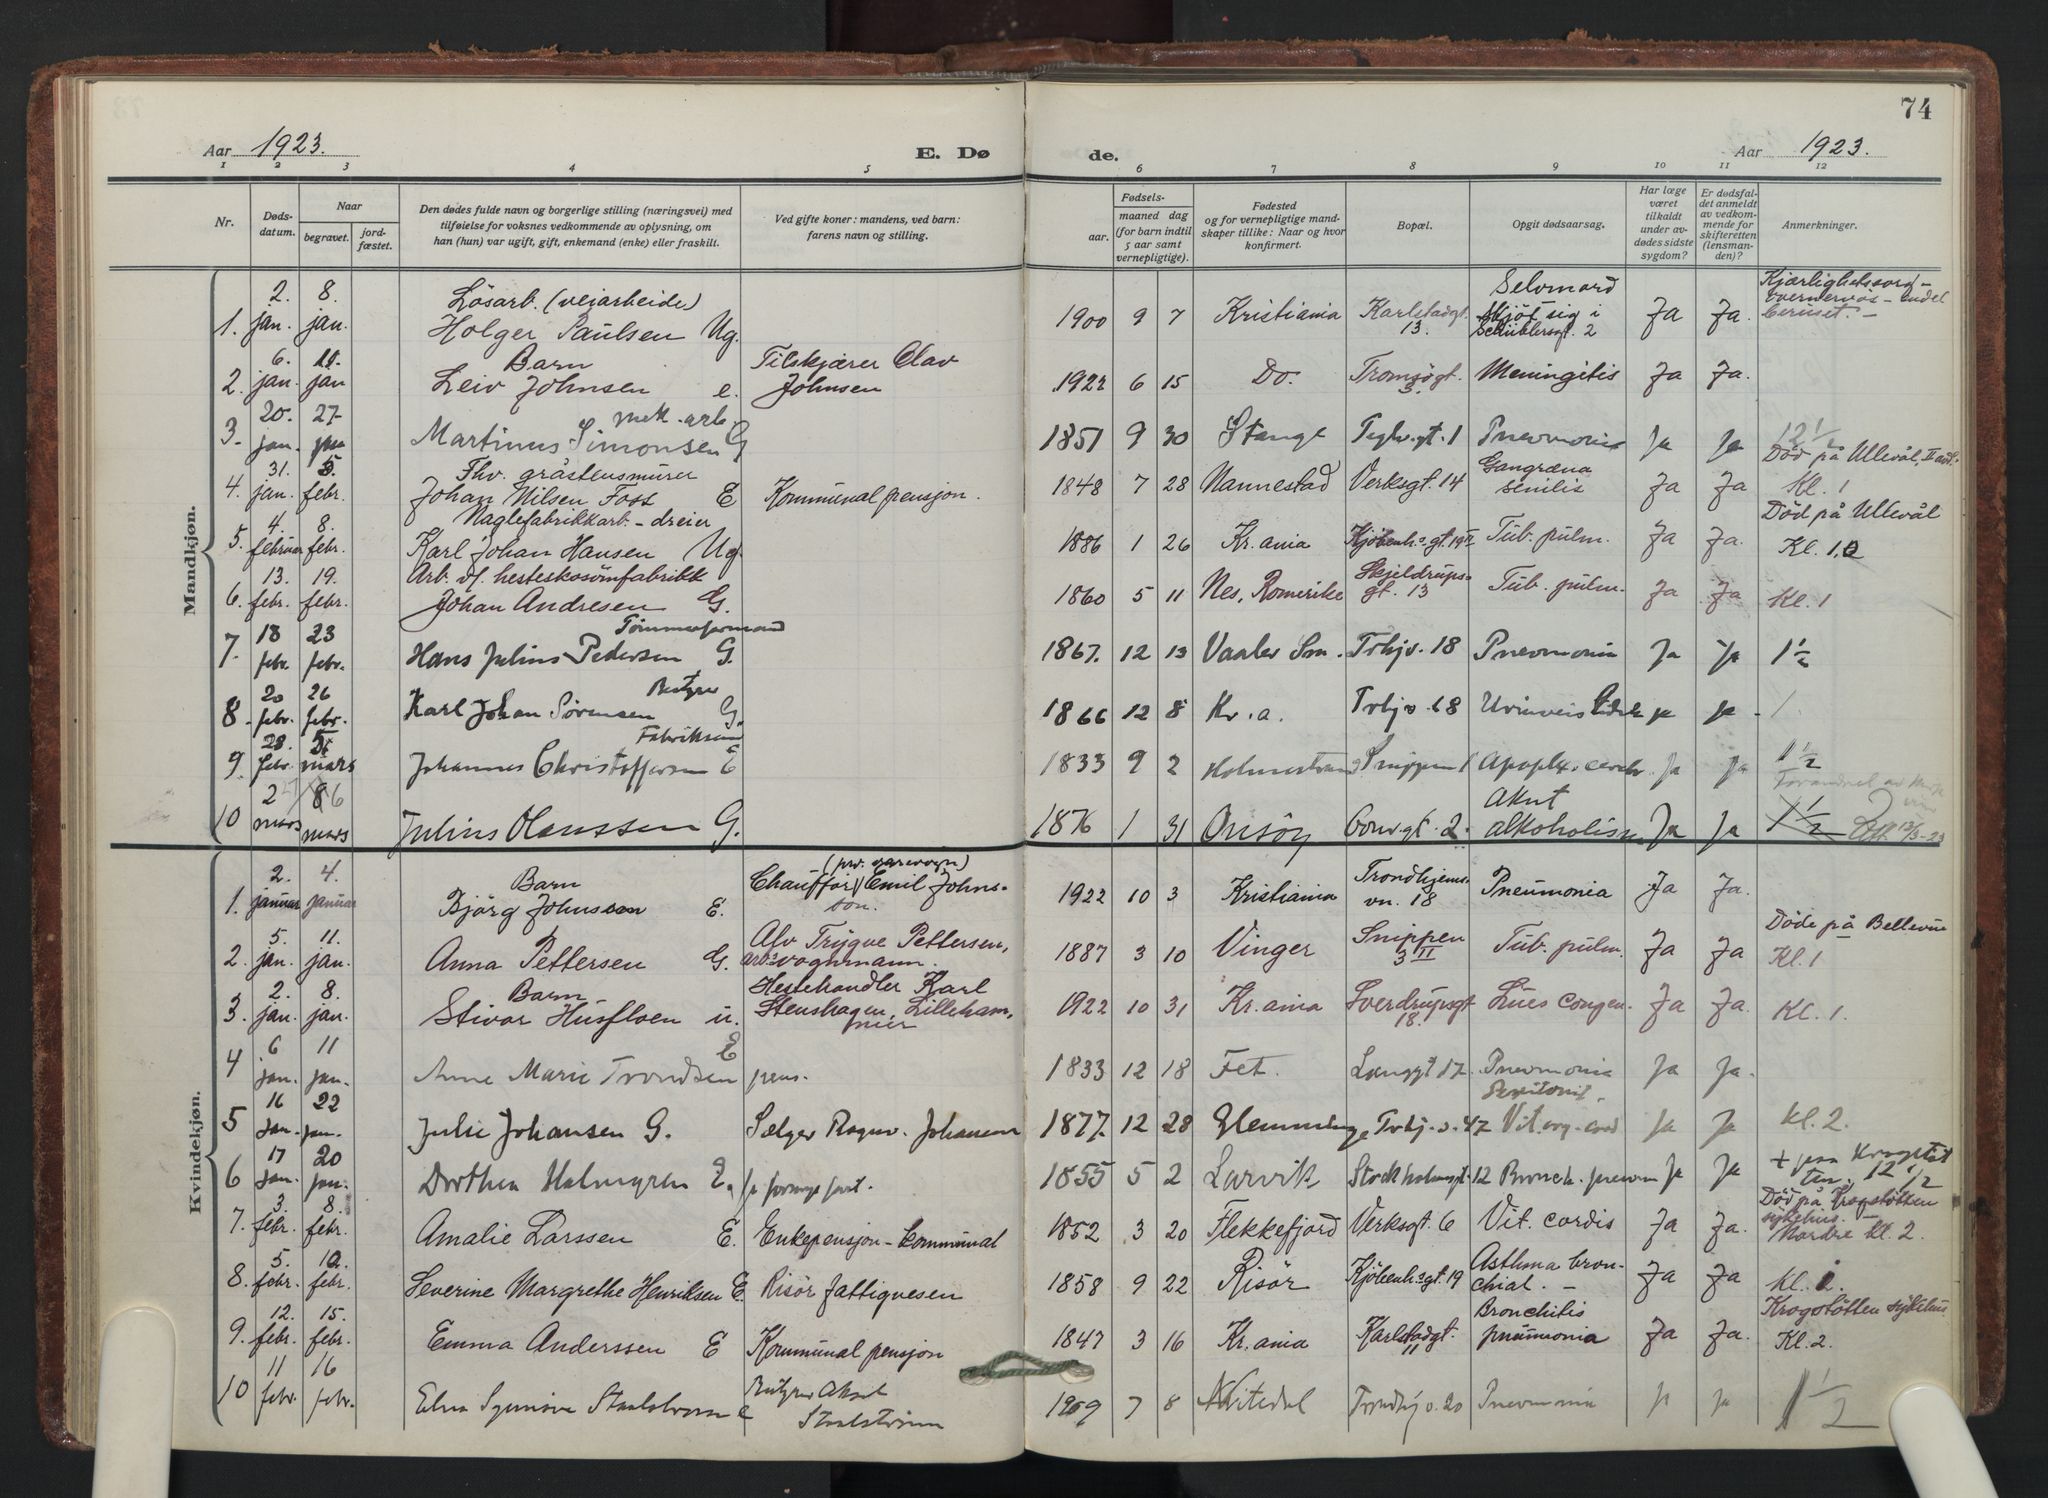 74
Aar 1923. E. Dø de. Aar 1923.
1 2 3 4 5 6 7 8 9 10 11 12
Nr. Dødsdatum. Naar begravet. jordfæstet. Den dødes fulde navn og borgerlige stilling (næringsvei) med tilføielse for voksnes vedkommende av oplysning, om han (hun) var ugift, gift, enkemand (enke) eller fraskilt. Ved gifte koner: mandens, ved barn: farens navn og stilling. Fødsels- aar. maaned dag (for barn indtil 5 aar samt vernepligtige). Fødested og for vernepligtige mandskaper tillike: Naar og hvor konfirmert. Bopæl. Opgit dødsaarsag. Har læge været tilkaldt under avdødes sidste sygdom? Er dødsfaldet anmeldt av vedkommende for skifteretten (lensmanden)? Anmerkninger.
Mandkjøn.
1. 2. jan. 8. jan. Løsarb. (veiarbeide) Holger Paulsen Ug. 1900 9 7 Kristiania Karlstadgt. 13. Selvmord skjöt sig i Schüblersgt. 2 Ja Ja. Kjærlighetssorg - overnervös - endel beruset. -
2. 6. jan. 11. jan Barn Leiv Johnsen e. Filskjærer Olav Johnsen 1922 6 15 Do. Tromsögt. 3. Meningitis Ja Ja.
3. 20. jan. 27. jan mek. arb. Martinus Simonsen G 1851 9 30 Stange Teglv.gt. 1 Pnevmonia Ja Ja 12 1/2
4. 31. jan. 5. febr. Fhv. gråstensmurer Johan Nilsen Foss E Kommunal pensjon. 1848 7 28 Nannestad Verksgt. 14 Gangræna senilis Ja Ja Død på Ullevål, II avd. Kl. 1
5. 4. februar 8. febr. Naglefabrikkarb. - dreier Karl Johan Hansen Ug. 1886 1 26 Kr.ania Kjöbenh.s gt. 19 II Tub. pulm. Ja Ja. Död på Ullevål Kl. 1.
6. 13. febr. 19. febr. Arb. v/. hesteskosömfabrikk Johan Andresen G. 1860 5 11 Nes, Romerike Skjeldrups- gt. 13 Tub. pulm. Ja Ja Kl. 1
7. 18 febr. 23 febr. Tømmerformand Hans Julius Pedersen G. 1867. 12 13 Vaaler Sm. Trhjv. 18 Pnevmonia Ja Ja 1 1/2
8. 20 febr. 26 febr. Bestyrer Karl Johan Sørensen G. 1866 12 8 Kr.a. Trhj v. 68 Urinveis Ja Ja 1
9. 28. febr. 5 mars Johannes Christoffersen E 1833 9 2 Holmestrand Snippen 1 Apoplx. cerebr. Ja Ja 1 1/2
10 2 mars 8 mars Julius Olaussen G. 1876 1 31 Onsöy Gøtv.gt. 2. Akut alkoholism Ja Ja 1 1/2 12/3-23
Kvindekjøn.
1. 2. januar 4. januar Barn Bjørg Johnsson E. Chauffør (prv. varevogn) Emil Johns- son. 1922 10 3 Kristiania Trondhjems- vn. 18 Pneumonia Ja Ja.
2. 5. jan. 11. jan. Anna Pettersen G. Alv Trygve Pettersen, arb. vognmann. 1887 3 10 Vinger Snippen 3 II Tub. pulm. Ja Ja Döde på Bellevue Kl. 1
3. 2. jan. 8. jan. Barn Stivor Husfloen u. Hestehandler Karl Stenshagen, Lilleham- mer 1922 10 31 Kr.ania Sverdrupsgt. 18. Lues congen. Ja Ja. Kl. 1.
4 6 jan. 11 jan. Anne Marie Trondsen E pens. 1833 12 18 Fet. Langgt 17. Pnevmonia Ja Ja.
5 16 jan. 22 jan. Julie Johansen G. Sælger Ragnv. Johansen 1877. 12 28 Glemminge Trhj.v. 47 Peritonit, Vit. org. cord Ja Ja kl. 2.
6 17 jan. 20 jan. Dorthea Holmgren E. 1855 5 2 Larvik Stockholmsgt. 12 Bronch. pnevm Ja Ja + paa Krogstøt ten. 12 1/2
7. 3. febr. 8. febr. Amalie Larssen E. Enkepensjon - kommunal 1852 3 20 Flekkefjord Verksgt. 6 Vit. cordis Ja Ja. Död på Krogstøtten sykehus. - Nordre kl. 2.
8. 5. febr. 10. febr. Severine Margrethe Henriksen E. Risör fattigvesen 1858 9 22 Risör Kjöbenh.sgt. 19 Asthma bron- chial. - Ja Ja. Kl. 2.
9. 12. febr. 15. febr. Emma Anderssen E Kommunal pensjon 1847 3 16 Kr.ania Karlstadgt. 11 Bronchitis pneumonia Ja Ja. Krogstøtten sykehus Kl. 2.
10 11 febr. 16 febr. Elna Synnöve Staalstrøm e Aksel Staalstrøm 1909 7 8 Nitedal Trondhj v. 20 Pnevmonia Ja Ja 1 1/2